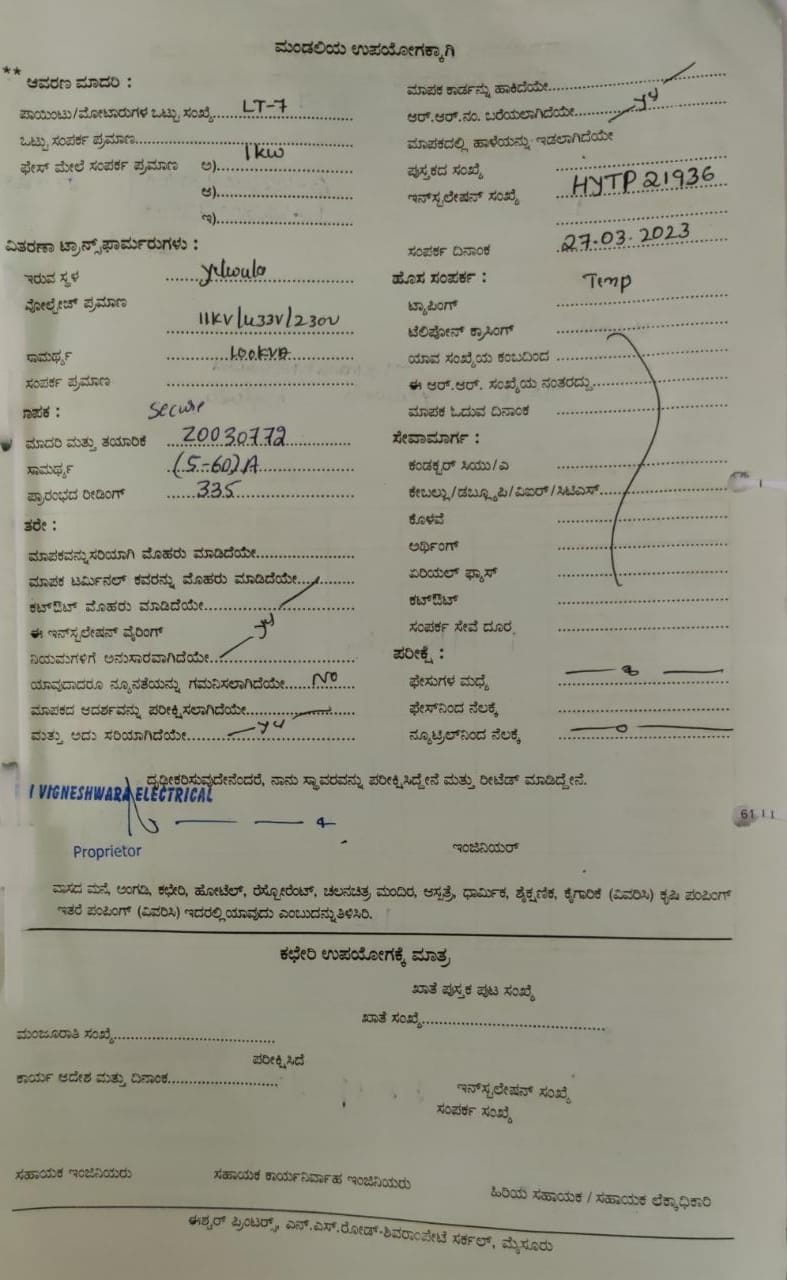 ಮಂಡಲಿಯ ಉಪಯೋಗಕ್ಕಾಗಿ
** ಆವರಣ ಮಾದರಿ :
ಪಾಯಿಂಟು/ಮೋಟಾರುಗಳ ಒಟ್ಟು ಸಂಖ್ಯೆ LT-7
ಒಟ್ಟು ಸಂಪರ್ಕ ಪ್ರಮಾಣ
ಫೇಸ್ ಮೇಲೆ ಸಂಪರ್ಕ ಪ್ರಮಾಣ ಅ) 1kw
ಆ)
ಇ)
ವಿತರಣಾ ಟ್ರಾನ್ಸ್‌ಫಾರ್ಮರುಗಳು :
ಇರುವ ಸ್ಥಳ
ವೋಲ್ಟೇಜ್ ಪ್ರಮಾಣ
11KV/433V/230V
ಸಾಮರ್ಥ್ಯ 100KVA
ಸಂಪರ್ಕ ಪ್ರಮಾಣ
ಮಾಪಕ : Secure
ಮಾದರಿ ಮತ್ತು ತಯಾರಿಕೆ Z0030772
ಸಾಮರ್ಥ್ಯ (5-60)A
ಪ್ರಾರಂಭದ ರೀಡಿಂಗ್ 335
ತರೇ :
ಮಾಪಕವನ್ನು ಸರಿಯಾಗಿ ಮೊಹರು ಮಾಡಿದೆಯೇ
ಮಾಪಕ ಟರ್ಮಿನಲ್ ಕವರನ್ನು ಮೊಹರು ಮಾಡಿದೆಯೇ
ಕಟ್‌ಔಟ್ ಮೊಹರು ಮಾಡಿದೆಯೇ
ಈ ಇನ್‌ಸ್ಟಲೇಷನ್ ವೈರಿಂಗ್
ನಿಯಮಗಳಿಗೆ ಅನುಸಾರವಾಗಿದೆಯೇ
ಯಾವುದಾದರೂ ನ್ಯೂನತೆಯನ್ನು ಗಮನಿಸಲಾಗಿದೆಯೇ No
ಮಾಪಕದ ಆದರ್ಶವನ್ನು ಪರೀಕ್ಷಿಸಲಾಗಿದೆಯೇ
ಮತ್ತು ಅದು ಸರಿಯಾಗಿದೆಯೇ
ಮಾಪಕ ಕಾರ್ಡನ್ನು ಹಾಕಿದೆಯೇ
ಆರ್.ಆರ್.ನಂ. ಬರೆಯಲಾಗಿದೆಯೇ
ಮಾಪಕದಲ್ಲಿ ಹಾಳೆಯನ್ನು ಇಡಲಾಗಿದೆಯೇ
ಪುಸ್ತಕದ ಸಂಖ್ಯೆ
ಇನ್‌ಸ್ಟಲೇಷನ್ ಸಂಖ್ಯೆ HYTP21936
ಸಂಪರ್ಕ ದಿನಾಂಕ 27.03.2023
ಹೊಸ ಸಂಪರ್ಕ : Temp
ಟ್ಯಾಪಿಂಗ್
ಟೆಲಿಫೋನ್ ಕ್ರಾಸಿಂಗ್
ಯಾವ ಸಂಖ್ಯೆಯ ಕಂಬದಿಂದ
ಈ ಆರ್.ಆರ್. ಸಂಖ್ಯೆಯ ನಂತರದ್ದು
ಮಾಪಕ ಓದುವ ದಿನಾಂಕ
ಸೇವಾಮಾರ್ಗ :
ಕಂಡಕ್ಟರ್ ಸಿಯು/ಎ
ಕೇಬಲ್ಲು/ಡಬ್ಲ್ಯೂಪಿ/ವಿಐಆರ್/ಸಿಟಿಎಸ್
ಕೊಳವೆ
ಅರ್ಥಿಂಗ್
ಏರಿಯಲ್ ಫ್ಯೂಸ್
ಕಟ್‌ಔಟ್
ಸಂಪರ್ಕ ಸೇವೆ ದೂರ
ಪರೀಕ್ಷೆ :
ಫೇಸುಗಳ ಮಧ್ಯೆ
ಫೇಸ್‌ನಿಂದ ನೆಲಕ್ಕೆ
ನ್ಯೂಟ್ರಲ್‌ನಿಂದ ನೆಲಕ್ಕೆ
ದೃಢೀಕರಿಸುವುದೇನೆಂದರೆ, ನಾನು ಸ್ಥಾವರವನ್ನು ಪರೀಕ್ಷಿಸಿದ್ದೇನೆ ಮತ್ತು ರೀಟೆಡ್ ಮಾಡಿದ್ದೇನೆ.
VIGNESHWARA ELECTRICAL
61
Proprietor
ಇಂಜಿನಿಯರ್
ವಾಸದ ಮನೆ, ಅಂಗಡಿ, ಕಛೇರಿ, ಹೋಟೆಲ್, ರೆಸ್ಟೋರೆಂಟ್, ಚಲನಚಿತ್ರ ಮಂದಿರ, ಆಸ್ಪತ್ರೆ, ಧಾರ್ಮಿಕ, ಶೈಕ್ಷಣಿಕ, ಕೈಗಾರಿಕೆ (ವಿವರಿಸಿ) ಕೃಷಿ ಪಂಪಿಂಗ್
ಇತರೆ ಪಂಪಿಂಗ್ (ವಿವರಿಸಿ) ಇದರಲ್ಲಿ ಯಾವುದು ಎಂಬುದನ್ನು ತಿಳಿಸಿರಿ.
ಕಛೇರಿ ಉಪಯೋಗಕ್ಕೆ ಮಾತ್ರ
ಖಾತೆ ಪುಸ್ತಕ ಪುಟ ಸಂಖ್ಯೆ
ಖಾತೆ ಸಂಖ್ಯೆ
ಮಂಜೂರಾತಿ ಸಂಖ್ಯೆ
ಪರೀಕ್ಷಿಸಿದೆ
ಕಾರ್ಯ ಆದೇಶ ಮತ್ತು ದಿನಾಂಕ
ಇನ್‌ಸ್ಟಲೇಷನ್ ಸಂಖ್ಯೆ
ಸಂಪರ್ಕ ಸಂಖ್ಯೆ
ಸಹಾಯಕ ಇಂಜಿನಿಯರು ಸಹಾಯಕ ಕಾರ್ಯನಿರ್ವಾಹ ಇಂಜಿನಿಯರು ಹಿರಿಯ ಸಹಾಯಕ / ಸಹಾಯಕ ಲೆಕ್ಕಾಧಿಕಾರಿ
ಈಶ್ವರ್ ಪ್ರಿಂಟರ್ಸ್, ಎನ್.ಎಸ್.ರೋಡ್-ಶಿವರಾಂಪೇಟೆ ಸರ್ಕಲ್, ಮೈಸೂರು